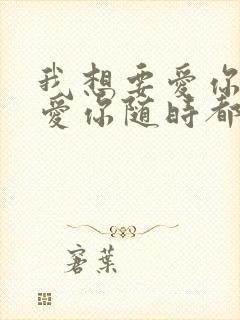 我想要愛你
愛你隨時都
窘葉